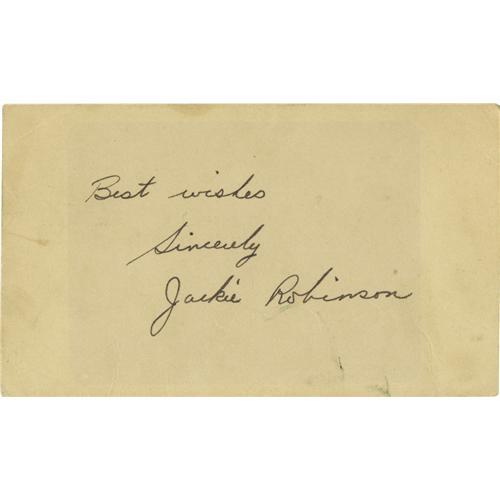 Best wishes
Sincerely
Jackie Robinson